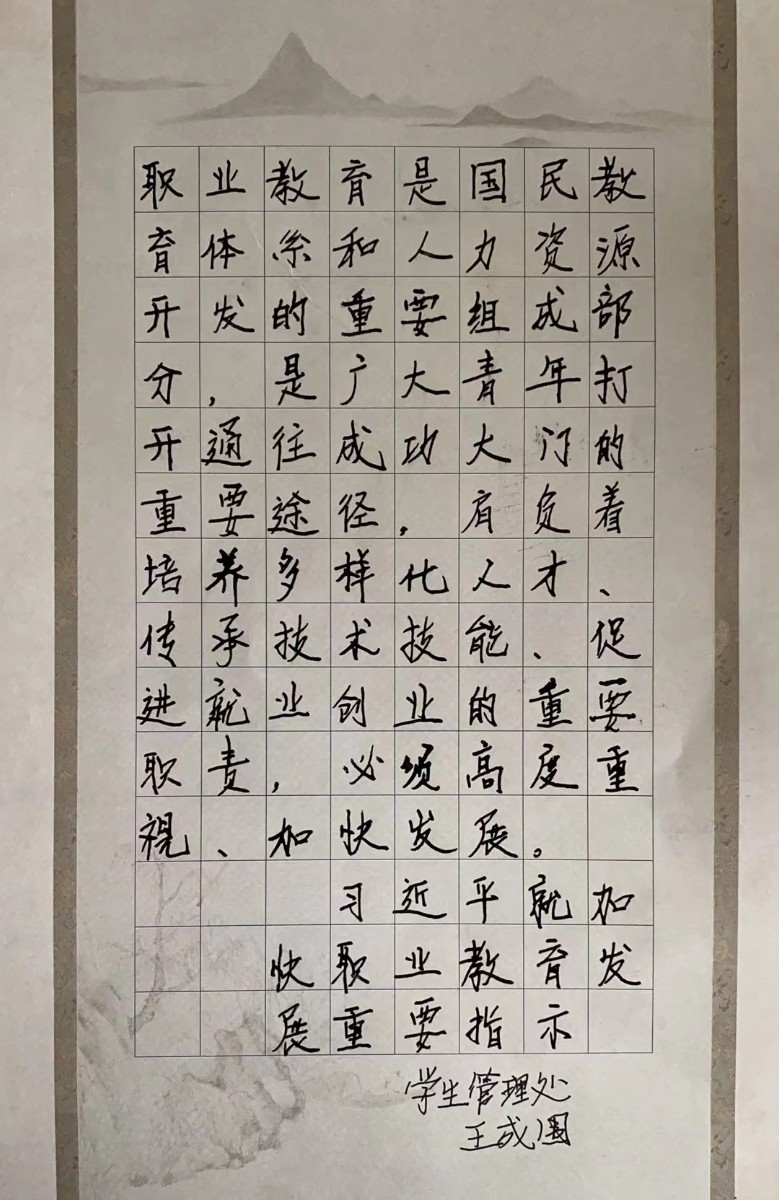 职业教育是国民教
育体系和人力资源
开发的重要组成部
分，是广大青年打
开通往成功大门的
重要途径，肩负着
培养多样化人才、
传承技术技能、促
进就业创业的重要
职责，必须高度重
视、加快发展。
习近平就加
快职业教育发
展重要指示
学生管理处
王成国